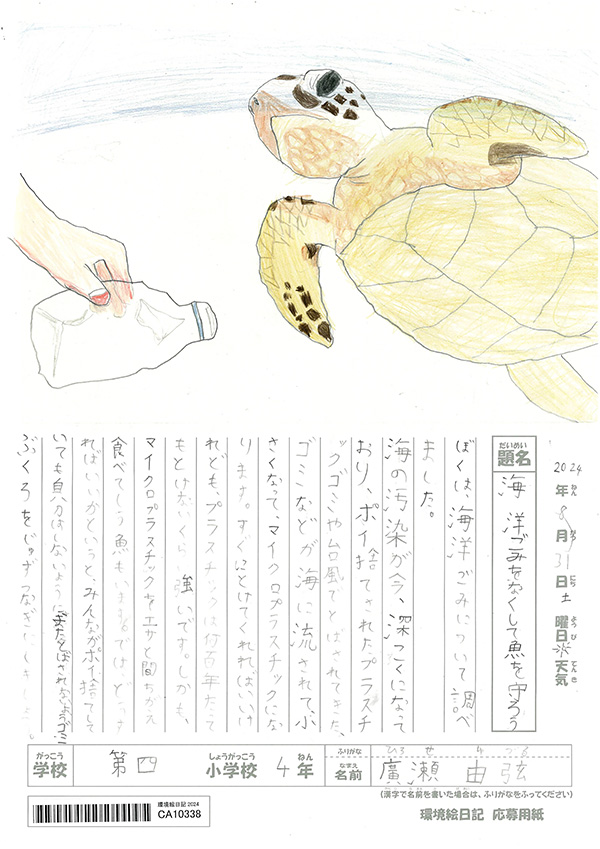 2024年8月31日土曜日天気
だいめい
題名
海洋ごみをなくして魚を守ろう
ぼくは、海洋ごみについて調べ
ました。
海の汚染が今、深こくになって
おり、ポイ捨てされたプラスチ
ックゴミや台風でとばされてきた、
ゴミなどが海に流されて、小
さくなって、マイクロプラスチックにな
ります。すぐにとけてくれればいいけ
れども、プラスチックは何百年たって
もとけないくらい強いです。しかも、
マイクロプラスチックをエサと間ちがえ
食べてしまう魚もいます。ではどうす
ればいいかというと、みんながポイ捨てして
いても自分はしないように
ぶくろを
がっこう
学校
第四
しょうがっこう
小学校
4年
ねん
ふりがな
ひろせ ゆづる
なまえ
名前
廣瀬 由弦
(漢字で名前を書いた場合は、ふりがなをふってください)
環境絵日記2024
CA10338
環境絵日記 応募用紙